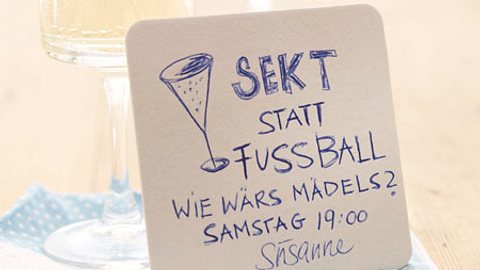 SEKT
STATT
FUSSBALL
WIE WÄRS MÄDELS?
SAMSTAG 19:00
Susanne